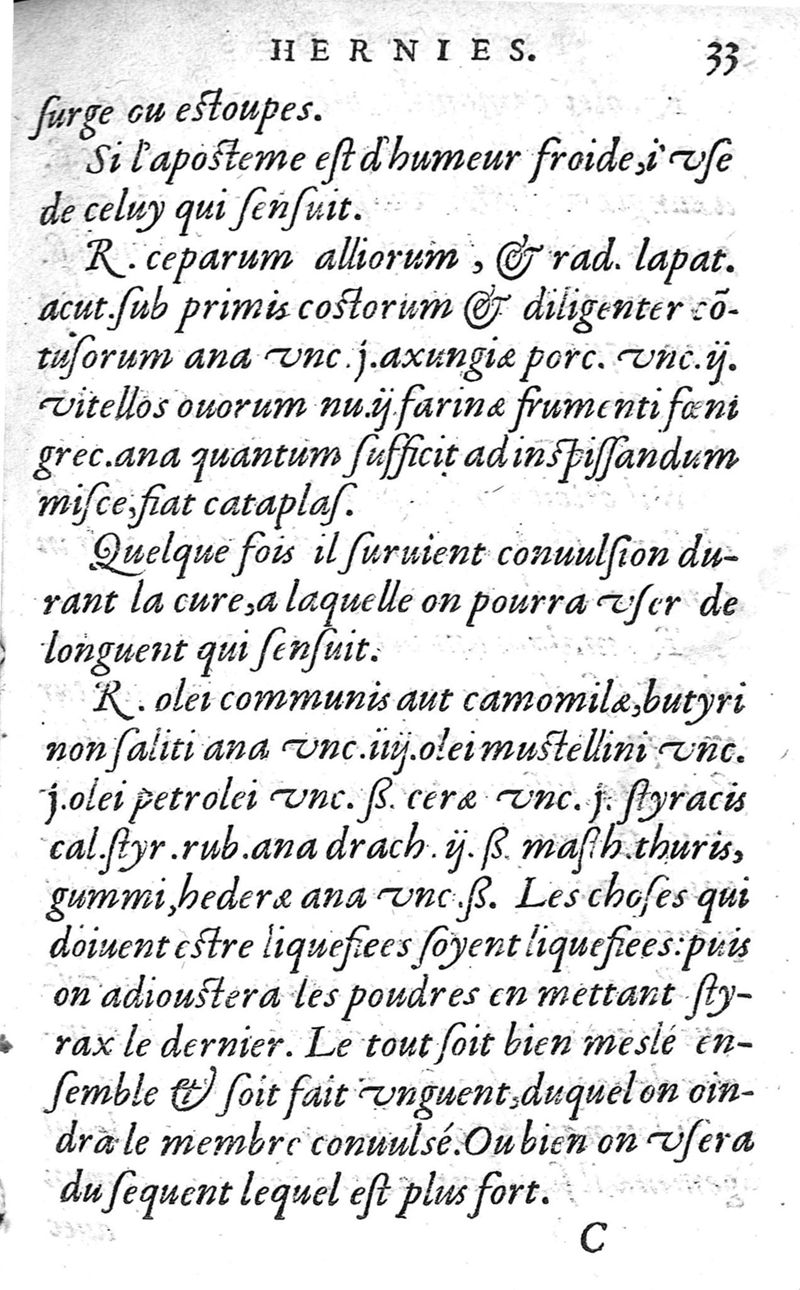 HERNIES. 33
ſurge ou eſtoupes.
Si l'apoſteme eſt d'humeur froide, i' vſe
de celuy qui ſenſuit.
R. ceparum alliorum, & rad. lapat.
acut. ſub primis coſtorum & diligenter cõ-
tuſorum ana vnc. j. axungiæ porc. vnc. ij.
vitellos ouorum nu. ij farinæ frumenti fœni
grec. ana quantum ſufficit ad inſpiſſandum
miſce, fiat cataplaſ.
Quelque fois il ſuruient conuulſion du-
rant la cure, a laquelle on pourra vſer de
longuent qui ſenſuit.
R. olei communis aut camomilæ, butyri
non ſaliti ana vnc. iiij. olei muſtellini vnc.
j. olei petrolei vnc. ß. ceræ vnc. j. ſtyracis
cal. ſtyr. rub. ana drach. ij. ß. maſth. thuris,
gummi, hederæ ana vnc. ß. Les choſes qui
doiuent eſtre liquefiees ſoyent liquefiees: puis
on adiouſtera les poudres en mettant ſty-
rax le dernier. Le tout ſoit bien meslé en-
ſemble & ſoit fait vnguent, duquel on oin-
dra le membre conuulsé. Ou bien on vſera
du ſequent lequel eſt plus fort.
C